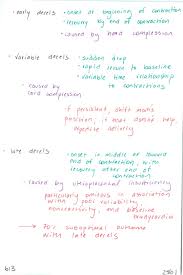 • early decels • onset at beginning of contraction
• recovery by end of contraction
• caused by head compression
• variable decels • sudden drop
• rapid return to baseline
• variable time relationship
to contractions
• caused by
cord compression
• if persistent, shift mom's
position, if that doesn't help,
• late decels • onset in middle or toward
end of contraction, with
recovery after end of
contraction
caused by uteroplacental insufficiency
particularly ominous in association
with poor variability,
nonreactivity, and baseline
bradycardia
→ 70% suboptimal outcome
with late decels
613